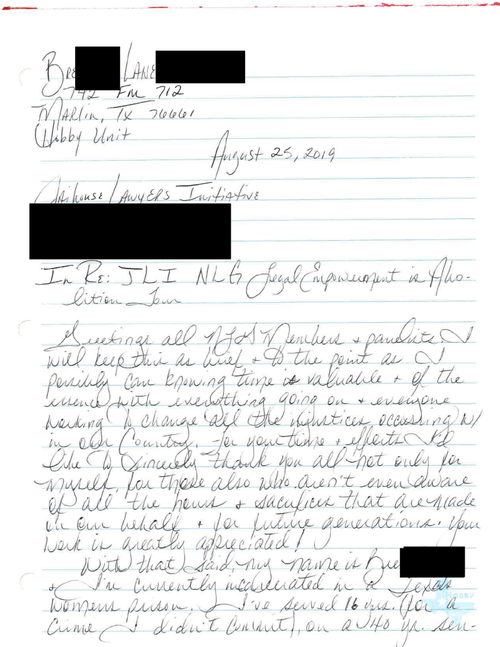 Bre LANE
742 FM 712
Marlin, TX 76661
Hobby Unit
August 25, 2019
Jailhouse Lawyers Initiative
In Re: JLI NLG Legal Empowerment is Abo-
lition Tour
Greetings all NLG Members & panelists. I
will keep this as brief & to the point as I
possibly can knowing time is valuable & of the
essence with everything going on & everyone
working to change all the injustices occurring w/
in our Country. For your time & efforts I'd
like to sincerely thank you all not only for
myself, for those also who aren't even aware
of all the hours & sacrifices that are made
on our behalf & for future generations. Your
work is greatly appreciated!
With that said, my name is Bre
& I'm currently incarcerated in a Texas
womens prison. I've served 16 yrs. (for a
crime I didn't commit), on a 40 yr. sen-